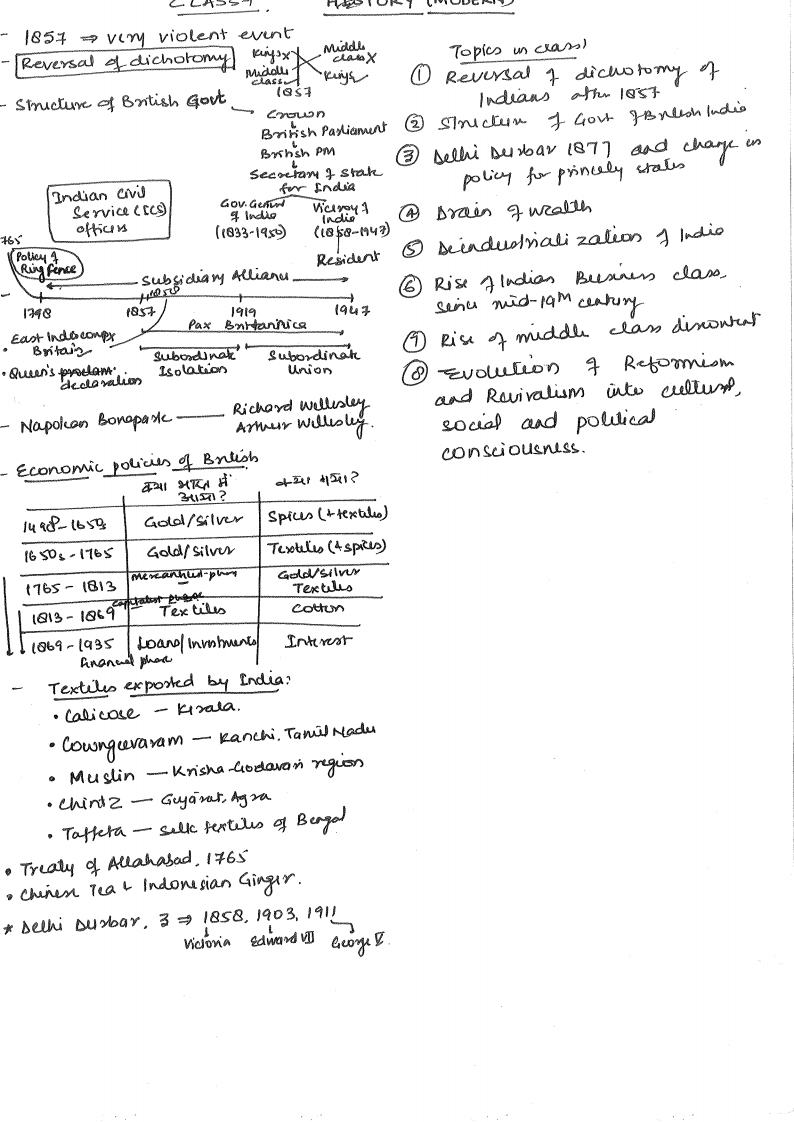 CLASS-7 HISTORY (MODERN)
- 1857 ⇒ very violent event
- Reversal of dichotomy
Kings X Middle class X
Middle class Kings
1857
- Structure of British Govt
Crown
British Parliament
British PM
Secretary of State for India
Gov. General of India (1833-1950)
Viceroy of India (1858-1947)
Resident
Indian Civil
Service (ICS)
officers
1765
Policy of
Ring Fence
Subsidiary Alliance
1858
1798 1857 1919 1947
Pax Britannica
• East India company
Britain
Subordinate Isolation
Subordinate Union
• Queen's proclam declaration
- Napolean Bonaparte — Richard Wellesley
Arthur Wellesley.
- Economic policies of British
क्या भारत में आया? क्या गया?
1498-1650s Gold/Silver Spices (+textiles)
1650s-1765 Gold/Silver Textiles (+spices)
1765 - 1813 mercantilist-phase — Gold/Silver Textiles
1813 - 1869 capitalist phase Textiles Cotton
1869-1935 Loans/Investments Interest
Financial phase
- Textiles exported by India:
• Calicose — Kerala.
• Cowngeevaram — Kanchi, Tamil Nadu
• Muslin — Krisha-Godavari region
• Chintz — Gujarat, Agra
• Taffeta — silk textiles of Bengal
• Treaty of Allahabad, 1765
• Chinese Tea & Indonesian Ginger.
* Delhi Durbar, 3 ⇒ 1858, 1903, 1911
Victoria Edward VII George V.
Topics in class)
① Reversal of dichotomy of
Indians after 1857
② Structure of Govt of British India
③ Delhi Durbar 1877 and change in
policy for princely states
④ Drain of wealth
⑤ Deindustrialization of India
⑥ Rise of Indian Business class,
since mid-19th century
⑦ Rise of middle class discontent
⑧ Evolution of Reformism
and Revivalism into cultural,
social and political
consciousness.